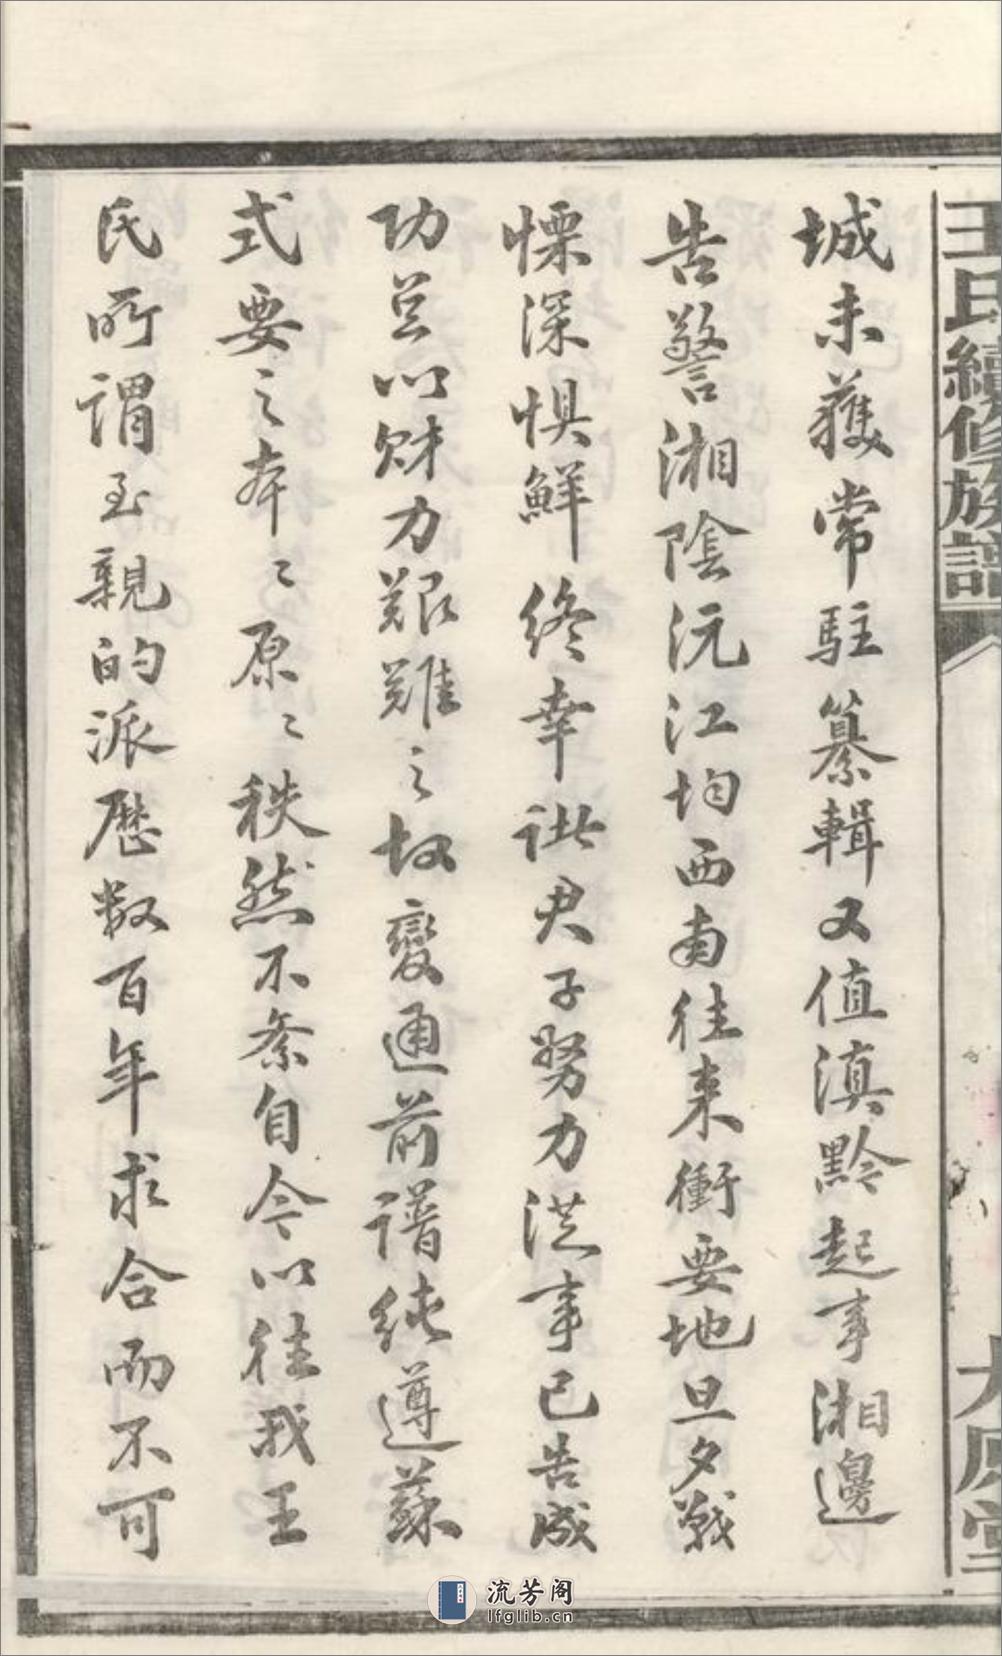 王氏續修族譜
城未獲常駐纂輯又值滇黔起事湘邊
告警湘陰沅江均西南往來衝要地旦夕戰
慄深惧鮮終幸諸君子努力洪事已告成
功豈以財力艱難之故變通前譜純遵蘇
式要之本〻原〻秩然不紊自今以往我王
氏所謂至親的派歷数百年求合而不可
流芳阁
lfglib.cn